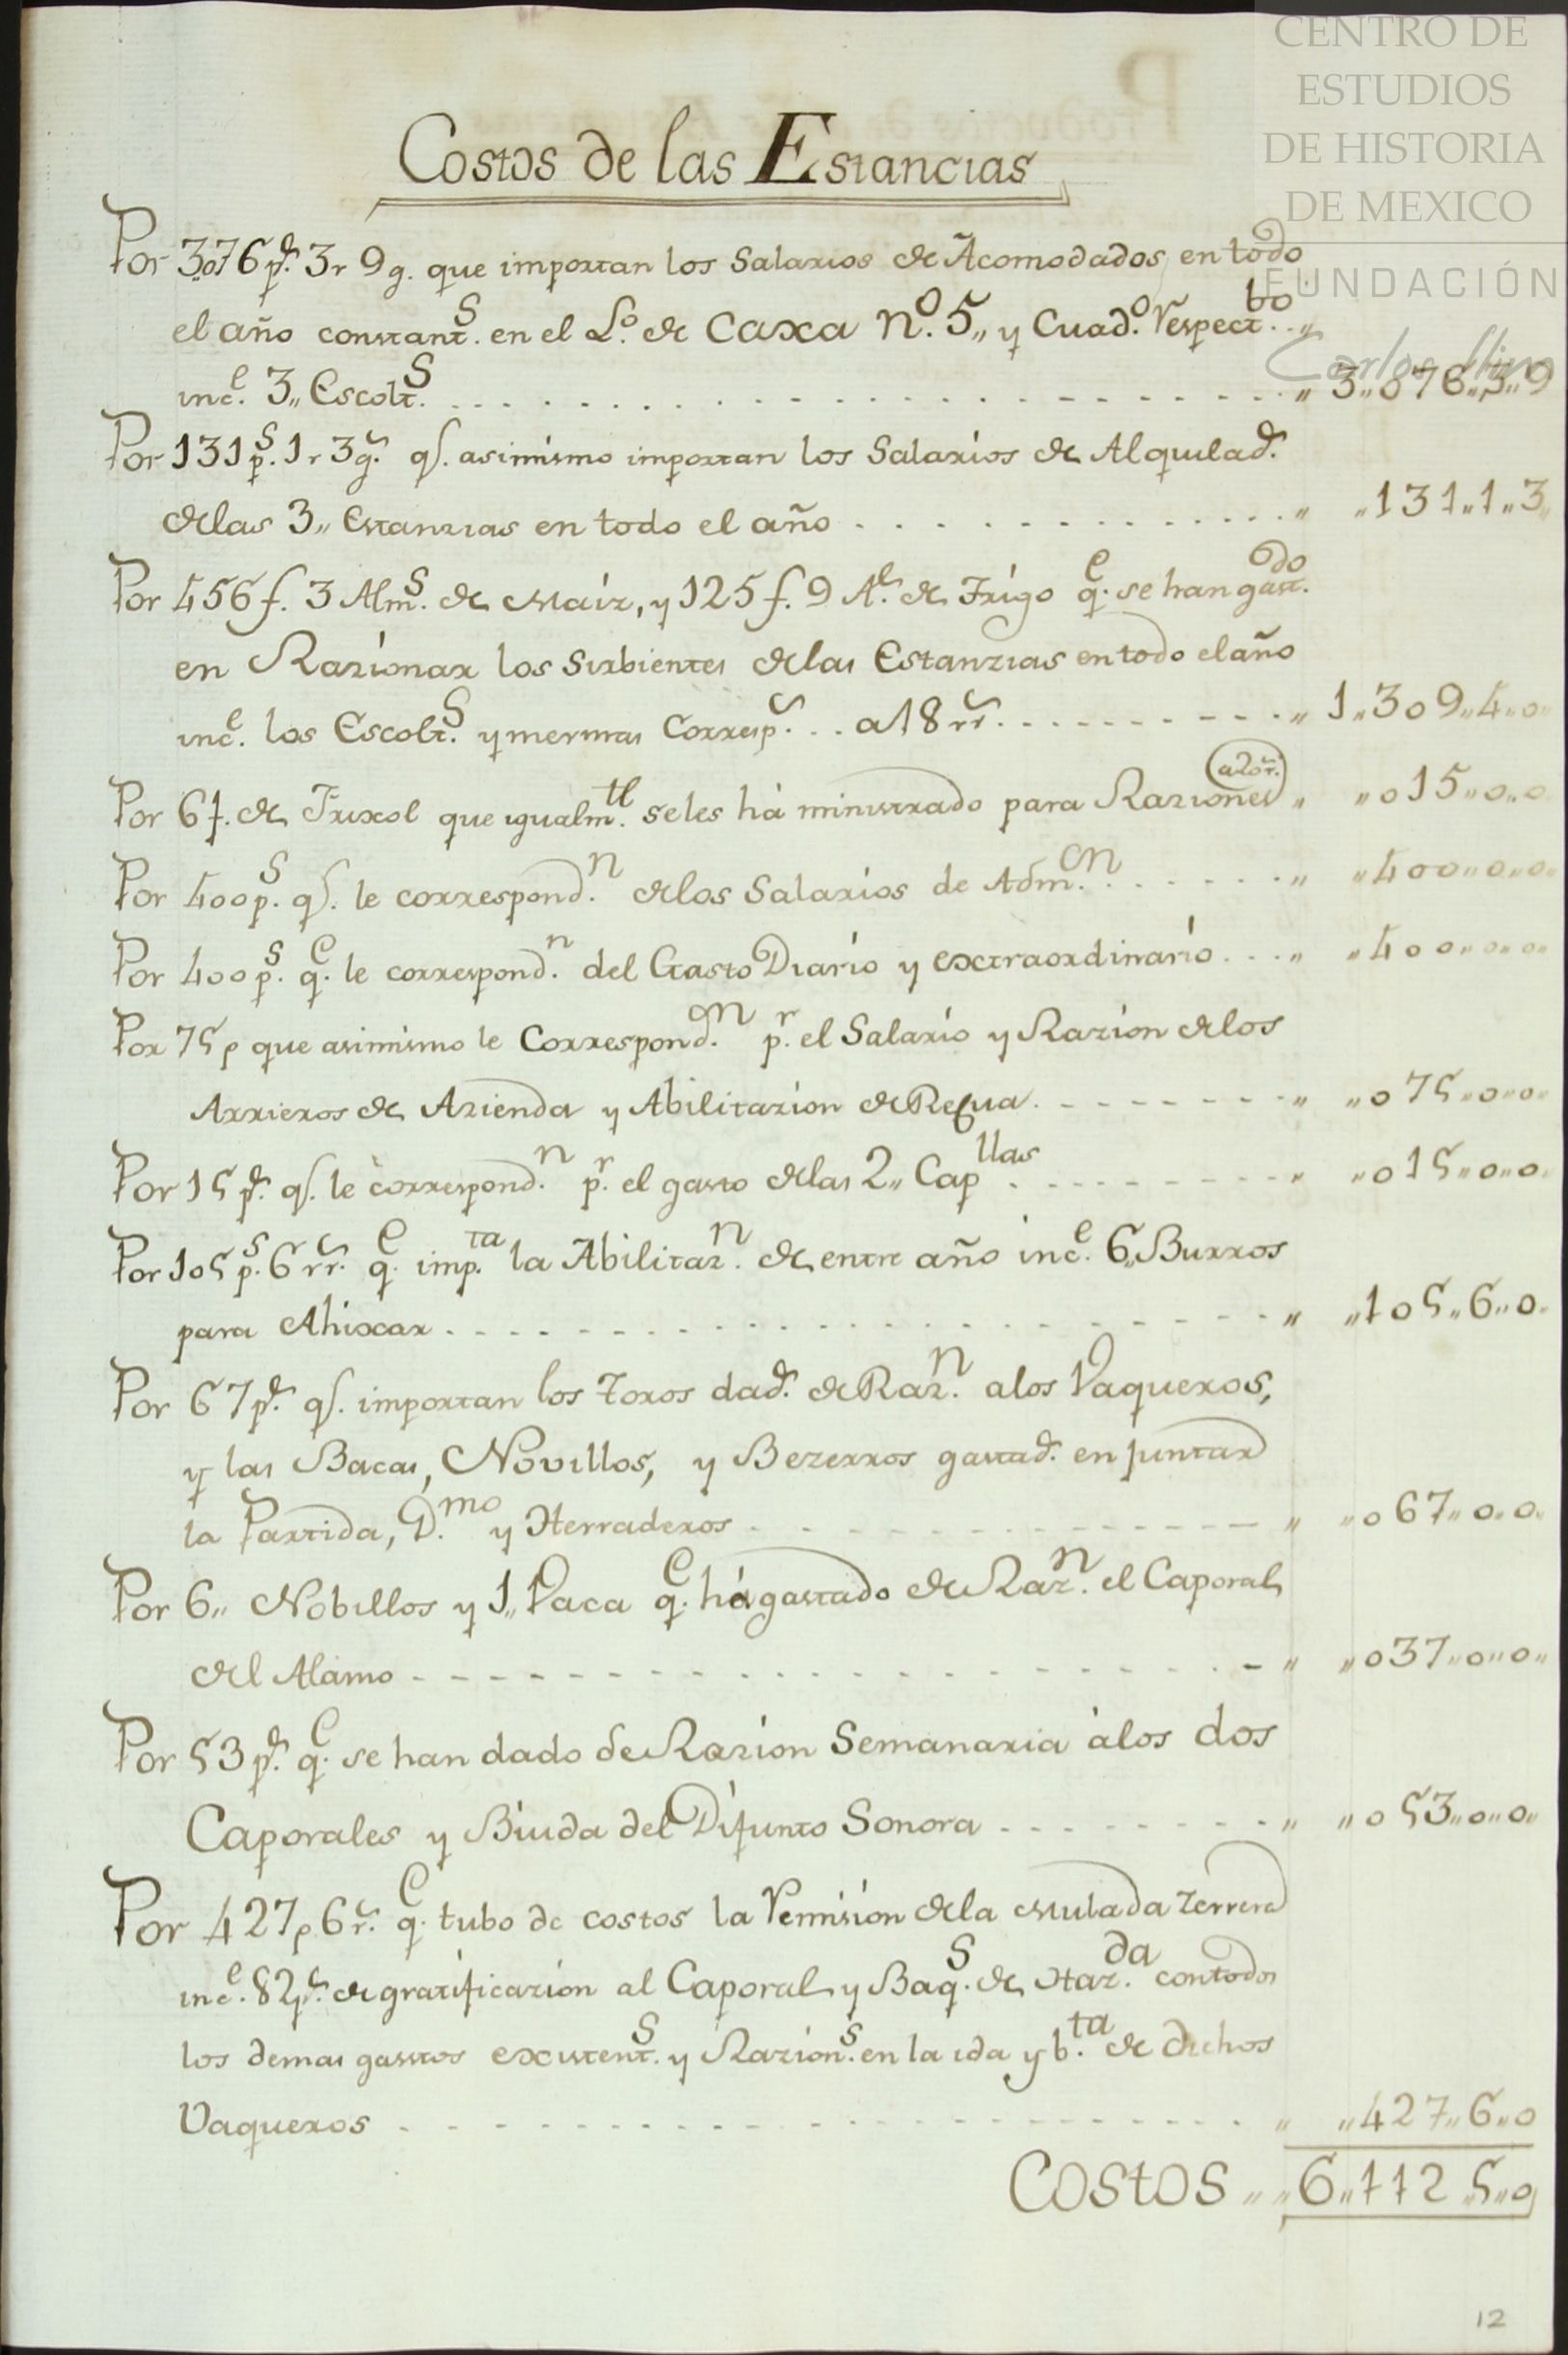 CENTRO DE
ESTUDIOS
DE HISTORIA
DE MEXICO
FUNDACIÓN
Carlos Slim
Costos de las Estancias
Por 3076 ps. 3 r 9 g. que importan los Salarios de Acomodados en todo
el año constants. en el Lo. de Caxa No. 5,, y Cuado. respectbo. ,,
ince. 3,, Escolts. . . . . . . . . ,, 3,,076,,3,,9
Por 131 ps. 1 r 3 gs. q. asimismo importan los Salarios de Alquilads.
de las 3,, Estanzias en todo el año . . . . . . ,, ,,131,,1,,3,,
Por 456 f. 3 Alms. de Maiz, y 125 f. 9 As. de Trigo qe. se han gastdo.
en Razionar los Sirbientes de las Estanzias en todo el año
ince. los Escolts. y mermas Corresps. . . a 18 rrs. . . . . . ,, 1,,309,,4,,0,,
Por 6 f. de Frixol que igualmte. se les há ministrado para Raziones a 20 r. ,, ,,015,,0,,0
Por 400 ps. q. le correspondn. de los Salarios de Admon. . . . . . ,, ,,400,,0,,0,,
Por 400 ps. qe. le correspondn. del Gasto Diario y extraordinario . . . ,, ,,400,,0,,0,,
Por 75 p que asimismo le Correspondn. pr. el Salario y Razion de los
Arrieros de Azienda y Abilitazion de Requa. - - - - - ,, ,,075,,0,,0,,
Por 15 ps. q. le correspondn. pr. el gasto de las 2,, Capllas. - - - - - ,, ,,015,,0,,0,,
Por 105 ps. 6 rrs. qe. impta. la Abilitazn. de entre año ince. 6,, Burros
para Ahixar . . . . . . . . ,, ,,105,,6,,0,,
Por 67 ps. q. importan los Toros dads. de Razn. a los Vaqueros,
y las Bacas, Novillos, y Bezerros gastads. en juntar
la Partida, D.mo y Herraderos - - - - - - ,, ,,067,,0,,0,,
Por 6,, Nobillos y 1,, Vaca qe. há gastado de Razn. el Caporal
del Alamo - - - - - - - - - ,, ,,037,,0,,0,,
Por 53 ps. qe. se han dado de Razion Semanaria à los dos
Caporales y Biuda del Difunto Sonora - - - - - ,, ,,053,,0,,0,,
Por 427 p 6 rs. qe. tubo de costos la remision de la Mulada zerrera
ince. 82 ps. de gratificazion al Caporal y Baqs. de Hazda. con todos
los demas gastos existents. y Razions. en la ida y bta. de dichos
Vaqueros - - - - - - - - ,, ,,427,,6,,0
Costos ,, ,, 6,,112,,5,,0
12